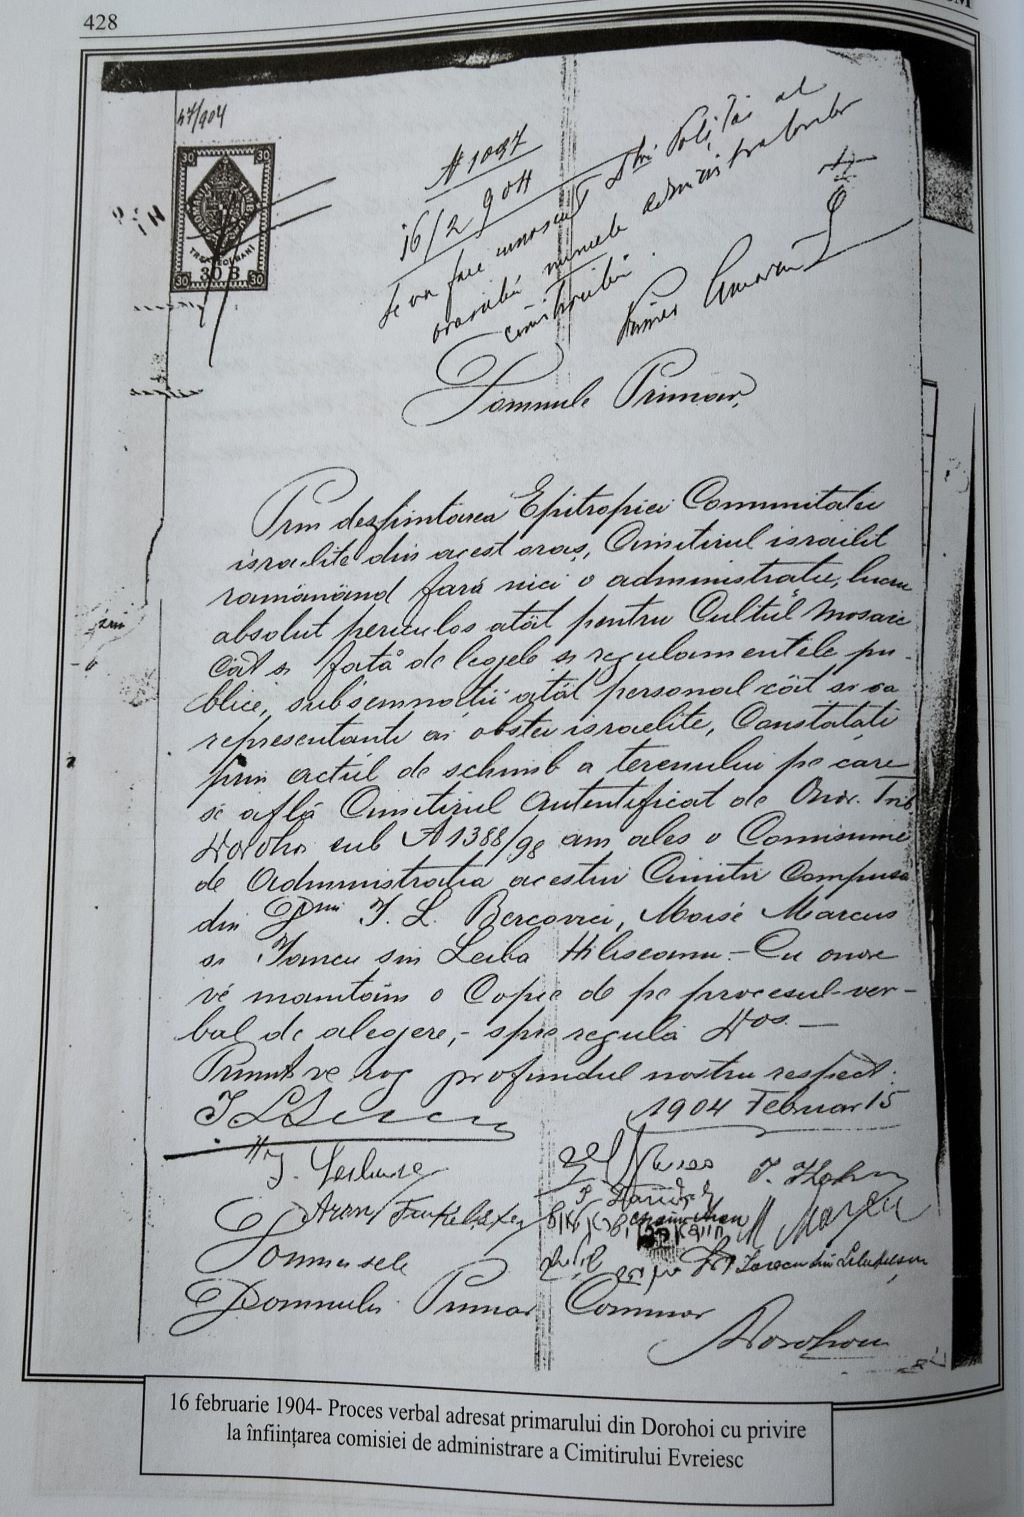 428
47/904
30 30
TREI ZECI BANI
30 B
30 30
№ 1097
16/2 904
Se va face cunoscut Dlui Polițai al
orașului numele administratorilor
cimitirului.
Primar
Domnule Primar,
Prin desființarea Epitropiei Comunitatei
israelite din acest oraș, Cimitirul israelit
rămânând fără nici o administrație, lucru
absolut periculos atât pentru Cultul Mosaic
cât și față de legele și regulamentele pu-
blice, subsemnații atât personal cât și ca
representanți ai obștei israelite, Constatați
prin actul de schimb a terenului pe care
se află Cimitirul autentificat de Onor. Trib
Dorohoi sub № 1388/98 am ales o Comisiune
de Administrația acestui Cimitir Compusă
din Dnii I. L. Bercovici, Moise Marcus
și Iancu sin Leiba Hiliseanu – Cu onore
vĕ înaintăm o Copie de pe procesul-ver-
bal de alegere, - spre regulă Dos. —
Primiți ve rog profundul nostru respect.
1904 Februar 15
Aron
Domnisele
Domnului Primar Comunei
Dorohoiu
16 februarie 1904- Proces verbal adresat primarului din Dorohoi cu privire
la înființarea comisiei de administrare a Cimitirului Evreiesc